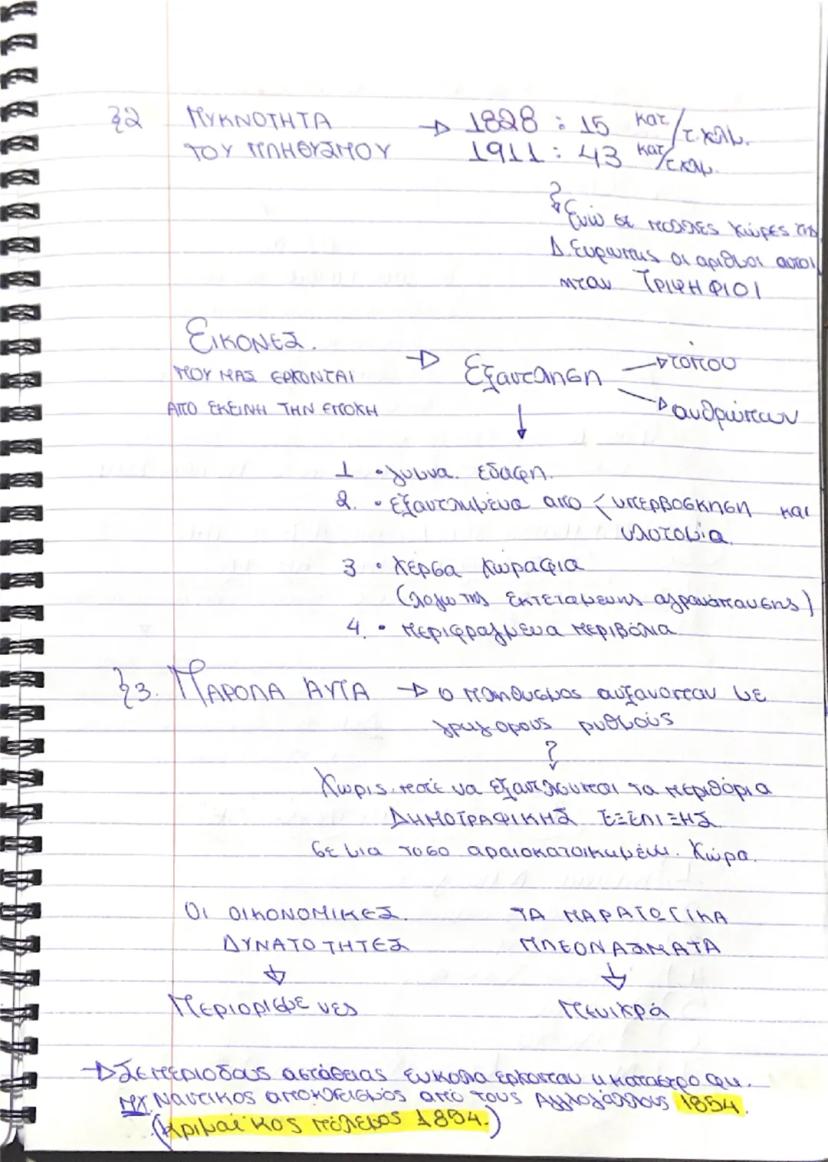 §2 ΠΥΚΝΟΤΗΤΑ → 1828 : 15 κατ/τ.χλμ.
ΤΟΥ ΠΛΗΘΥΣΜΟΥ 1911 : 43 κατ/τ.χλμ.
Ενώ σε πολλές χώρες της
Δ. Ευρώπης οι αριθμοί αυτοί
ήταν ΤΡΙΨΗΦΙΟΙ
ΕΙΚΟΝΕΣ. → Εξάντληση → τόπου
ΠΟΥ ΜΑΣ ΕΡΧΟΝΤΑΙ
ΑΠΟ ΕΚΕΙΝΗ ΤΗΝ ΕΠΟΧΗ → ανθρώπων
1 • γυμνά. εδάφη.
2. • εξαντλημένα από < υπερβόσκηση και
υλοτομία.
3 • χέρσα χωράφια
(λόγω της εκτεταμένης αγρανάπαυσης)
4. • περιφραγμένα περιβόλια
§3. ΠΑΡΟΛΑ ΑΥΤΑ → ο πληθυσμός αυξανόταν με
γρήγορους ρυθμούς
Χωρίς ποτέ να εξαντλούνται τα περιθόρια
ΔΗΜΟΓΡΑΦΙΚΗΣ ΕΞΕΛΙΞΗΣ
σε μια τόσο αραιοκατοικημένη. Χώρα.
ΟΙ ΟΙΚΟΝΟΜΙΚΕΣ. ΤΑ ΠΑΡΑΓΩΓΙΚΑ
ΔΥΝΑΤΟΤΗΤΕΣ ΠΛΕΟΝΑΣΜΑΤΑ
Περιορισμένες Πενιχρά
→ Σε περιόδους αστάθειας εύκολα ερχόταν η καταστροφή.
πχ Ναυτικός αποκλεισμός από τους Αγγλογάλλους 1854.
(Κριμαϊκός πόλεμος 1854.)